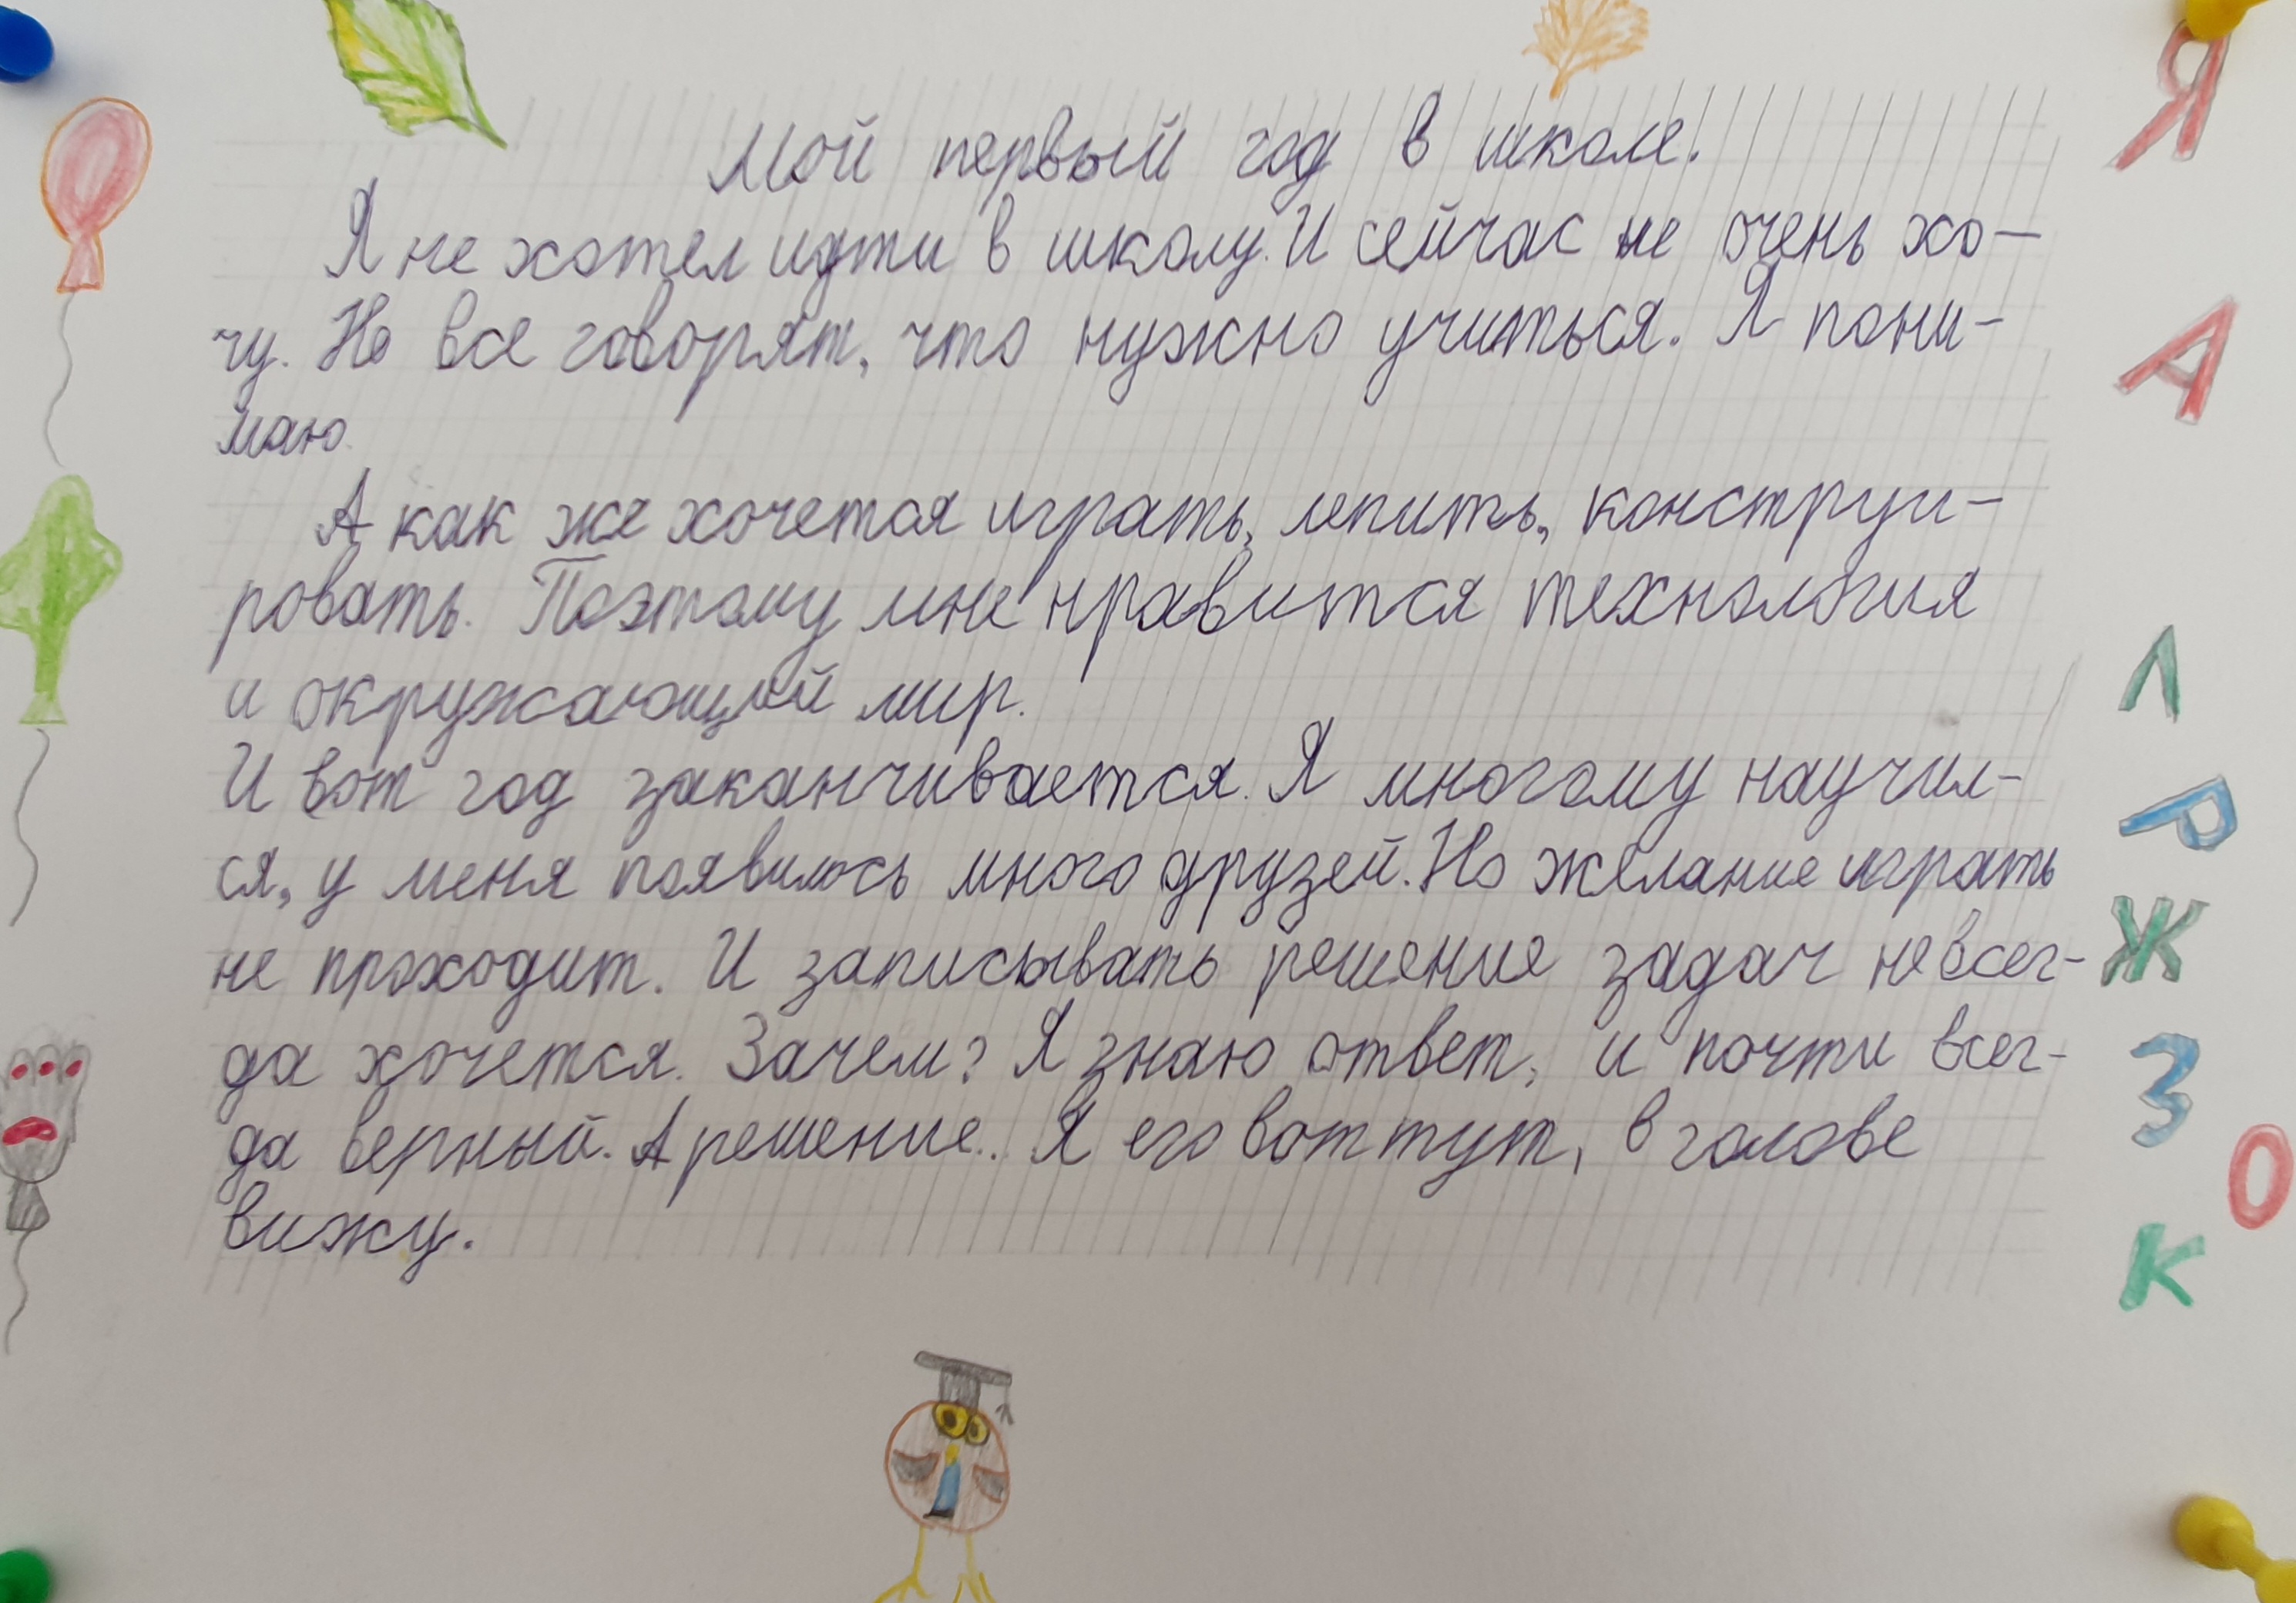 Мой первый год в школе.
Я не хотел идти в школу. И сейчас не очень хо-
чу. Но все говорят, что нужно учиться. Я пони-
маю.
А как же хочется играть, лепить, конструи-
ровать. Поэтому мне нравится технология
и окружающий мир.
И вот год заканчивается. Я многому научил-
ся, у меня появилось много друзей. Но желание играть
не проходит. И записывать решение задач не всег-
да хочется. Зачем? Я знаю ответ, и почти всег-
да верный. А решение.. Я его вот тут, в голове
вижу.
Я
А
Л
Р
Ж
З
О
К